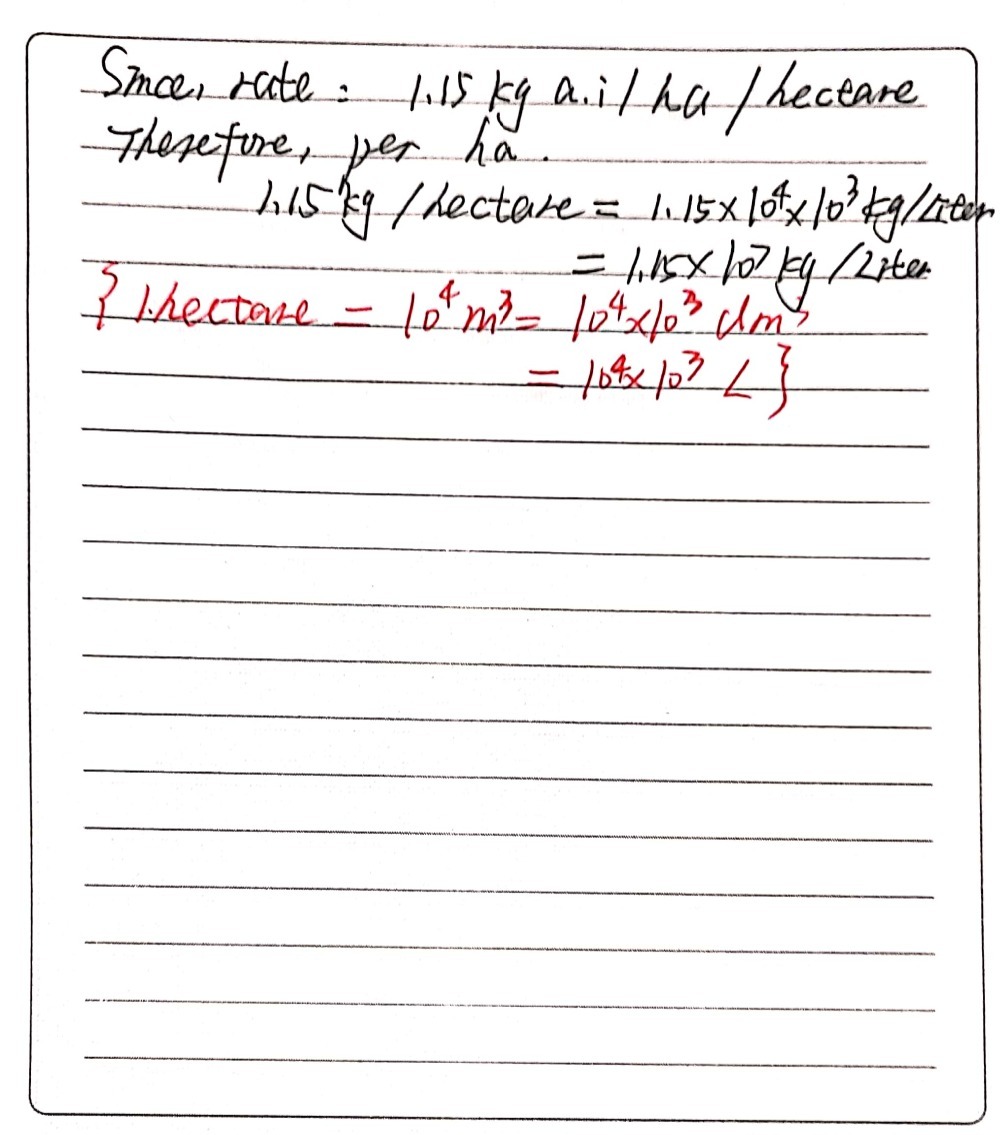 Since, rate : 1.15 kg a.i / ha / hectare
Therefore, per ha.
1.15 kg / hectare = 1.15 × 10⁴ × 10³ kg/Liter
= 1.15 × 10⁷ kg / Liter
{ 1 hectare = 10⁴ m³ = 10⁴ × 10³ dm³
= 10⁴ × 10³ L }